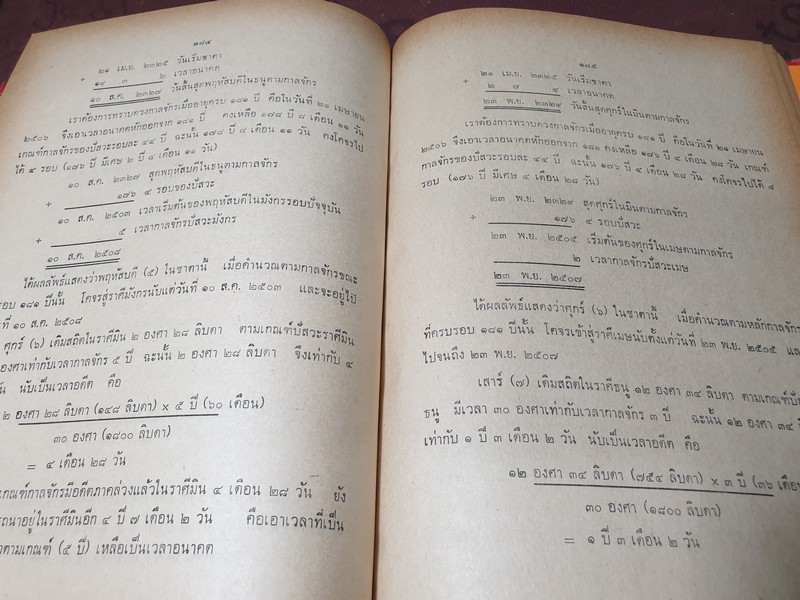 ๑๘๔
๒๑ เม.ย. ๒๓๒๕ วันเริ่มชาตา
+
๑๔ ๓ ๒ เวลาอนาคต
๑๐ ส.ค. ๒๓๒๗ วันสิ้นสุดพฤหัสบดีในธนูตามกาลจักร
เราต้องการทราบดวงกาลจักรเมื่ออายุครบ ๑๘๑ ปี คือในวันที่ ๒๑ เมษายน
๒๕๐๖ จึงเอาเวลาอนาคตหักออกจาก ๑๘๑ ปี คงเหลือ ๑๗๘ ปี ๘ เดือน ๑๑ วัน
เกณฑ์กาลจักรของบั่สวะรอบละ ๔๔ ปี ฉะนั้น ๑๗๘ ปี ๘ เดือน ๑๑ วัน คงโคจรไป
ได้ ๔ รอบ (๑๗๖ ปี มีเศษ ๒ ปี ๘ เดือน ๑๑ วัน)
๑๐ ส.ค. ๒๓๒๗ สุดพฤหัสบดีในธนูตามกาลจักร
+
๑๗๖ ๔ รอบของบั่สวะ
๑๐ ส.ค. ๒๕๐๓ เวลาเริ่มต้นของพฤหัสบดีในมังกรรอบปัจจุบัน
+
๕ เวลากาลจักรบั่สวะมังกร
๑๐ ส.ค. ๒๕๐๘
ได้ผลลัพธ์แสดงว่าพฤหัสบดี (๕) ในชาตานี้ เมื่อคำนวณตามกาลจักรขณะ
รอบ ๑๘๑ ปีนั้น โคจรสู่ราศีมังกรนับแต่วันที่ ๑๐ ส.ค. ๒๕๐๓ และจะอยู่ไป
ที่ ๑๐ ส.ค. ๒๕๐๘
ศุกร์ (๖) เดิมสถิตในราศีมีน ๒ องศา ๒๘ ลิบดา ตามเกณฑ์บั่สวะราศีมีน
องศาเท่ากับเวลากาลจักร ๕ ปี ฉะนั้น ๒ องศา ๒๘ ลิบดา จึงเท่ากับ ๔
น นับเป็นเวลาอดีต คือ
๒ องศา ๒๘ ลิบดา (๑๔๘ ลิบดา) × ๕ ปี (๖๐ เดือน)
๓๐ องศา (๑๘๐๐ ลิบดา)
= ๔ เดือน ๒๘ วัน
เกณฑ์กาลจักรมีอดีตภาคล่วงแล้วในราศีมีน ๔ เดือน ๒๘ วัน ยัง
รถนาอยู่ในราศีมีนอีก ๔ ปี ๗ เดือน ๒ วัน คือเอาเวลาที่เป็น
ตามเกณฑ์ (๕ ปี) เหลือเป็นเวลาอนาคต
๑๘๕
๒๑ เม.ย. ๒๓๒๕ วันเริ่มชาตา
+
๒ ๗ ๔ เวลาอนาคต
๒๓ พ.ย. ๒๓๒๙ วันสิ้นสุดศุกร์ในมีนตามกาลจักร
เราต้องการทราบดวงกาลจักรเมื่ออายุครบ ๑๘๑ ปี คือในวันที่ ๒๑ เมษายน
๒๕๐๖ จึงเอาเวลาอนาคตหักออกจาก ๑๘๑ คงเหลือ ๑๗๖ ปี ๔ เดือน ๒๘ วัน เกณฑ์
กาลจักรของบั่สวะรอบละ ๔๔ ปี ฉะนั้น ๑๗๖ ปี ๔ เดือน ๒๘ วัน คงโคจรไปได้ ๔
รอบ (๑๗๖ ปี มีเศษ ๔ เดือน ๒๘ วัน)
๒๓ พ.ย. ๒๓๒๙ สุดศุกร์ในมีนตามกาลจักร
+
๑๗๖ ๔ รอบบั่สวะ
๒๓ พ.ย. ๒๕๐๕ เริ่มต้นของศุกร์ในเมษตามกาลจักร
๒ เวลากาลจักรบั่สวะเมษ
๒๓ พ.ย. ๒๕๐๗
ได้ผลลัพธ์แสดงว่าศุกร์ (๖) ในชาตานี้ เมื่อคำนวณตามหลักกาลจักร
ที่ครบรอบ ๑๘๑ ปีนั้น โคจรเข้าสู่ราศีเมษนับตั้งแต่วันที่ ๒๓ พ.ย. ๒๕๐๕ แล
ไปจนถึง ๒๓ พ.ย. ๒๕๐๗
เสาร์ (๗) เดิมสถิตในราศีธนู ๑๒ องศา ๓๔ ลิบดา ตามเกณฑ์บั่
ธนู มีเวลา ๓๐ องศาเท่ากับเวลากาลจักร ๓ ปี ฉะนั้น ๑๒ องศา ๓๔
เท่ากับ ๑ ปี ๓ เดือน ๒ วัน นับเป็นเวลาอดีต คือ
๑๒ องศา ๓๔ ลิบดา (๗๕๔ ลิบดา) × ๓ ปี (๓๖ เดือ
๓๐ องศา (๑๘๐๐ ลิบดา)
= ๑ ปี ๓ เดือน ๒ วัน